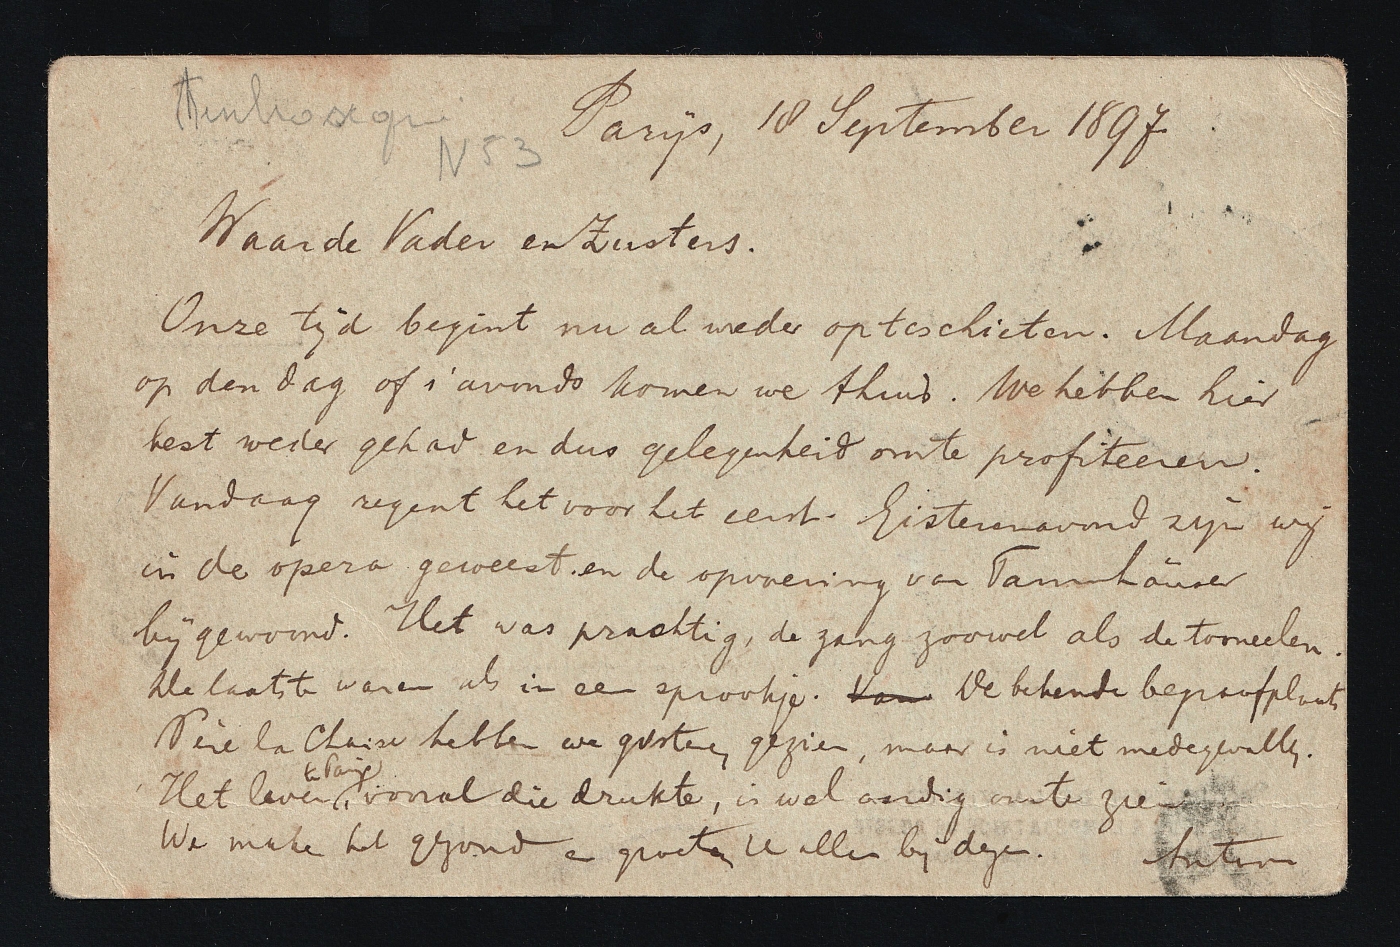 N 53
Parijs, 18 September 1897
Waarde Vader en Zusters.
Onze tijd begint nu al weder op te schieten. Maandag
op den dag of s'avonds komen we thuis. We hebben hier
best weder gehad en dus gelegenheid om te profiteeren.
Vandaag regent het voor het eerst. Gisterenavond zijn wij
in de opera geweest en de opvoering van Tannhäuser
bijgewoond. Het was prachtig, de zang zoowel als de tooneelen.
De laatste waren als in een sprookje. Van De bekende begraafplaats
Père la Chaise hebben we gisteren gezien, maar is niet medegevallen.
Het leven te Parijs, vooral die drukte, is wel aardig om te zien.
We maken het gezond en groeten U allen bij dezen. Anton